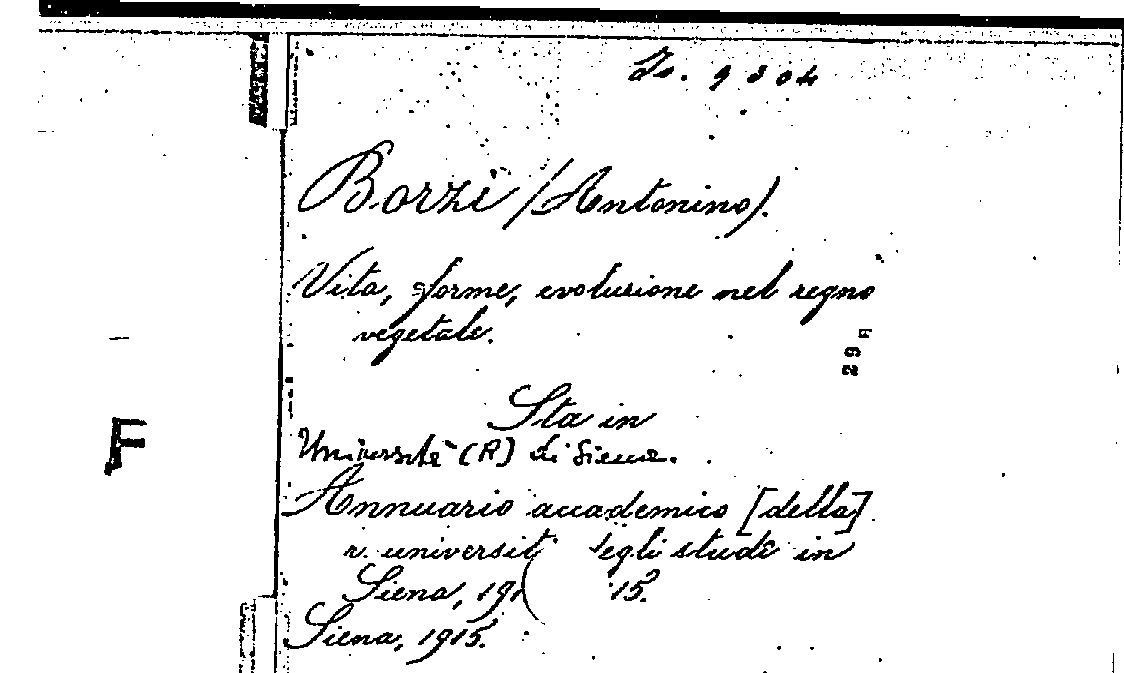 9304
Borzì (Antonino).
Vita, forme, evoluzione nel regno
vegetale.
29 H
Sta in
Università (R) di Siena.
F
Annuario accademico [della]
r. universit egli studî in
Siena, 191 15.
Siena, 1915.